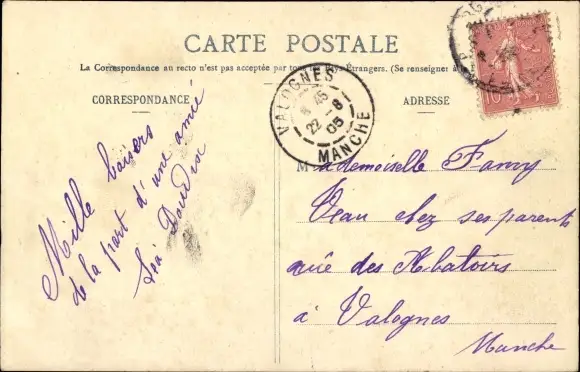 CARTE POSTALE
La Correspondance au recto n'est pas acceptée par tous les Pays Étrangers. (Se renseigner à
CORRESPONDANCE
ADRESSE
VALOGNES
45
22-8
05
MANCHE
10
Mille baisers
de la part d'une amie
Léa
Mademoiselle Fanny
Veau chez ses parents
rue des Abatoirs
à Valognes
Manche